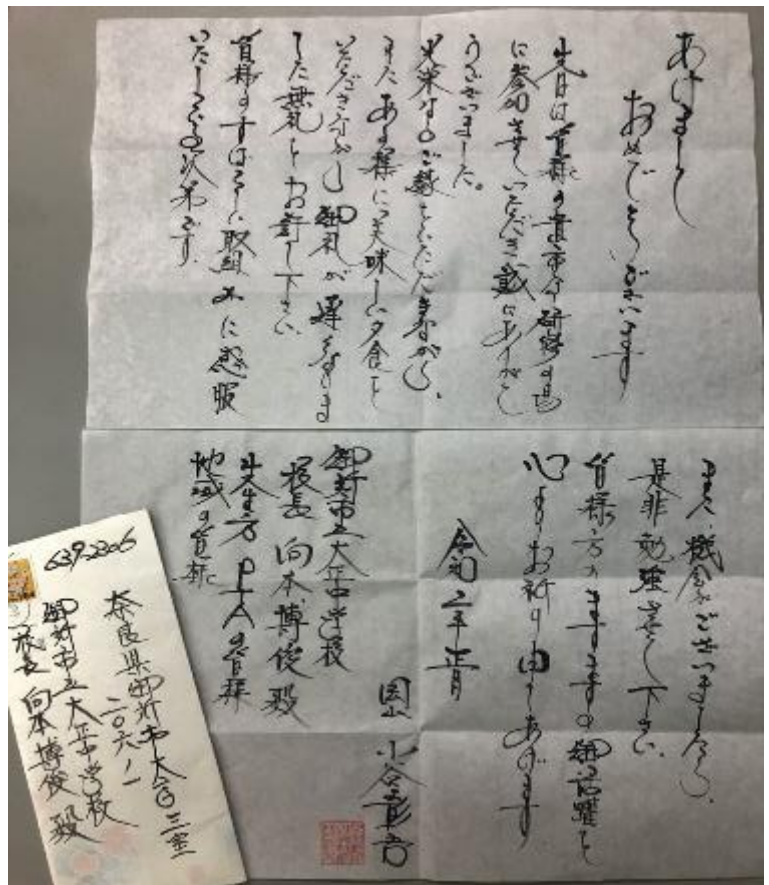 あけまして
おめでとうございます
先日は皆様の貴市の研修の場
に参加させていただき誠にありがと
うございました。
先生のご
また あの様に美味しい夕食を
いただきながら 御礼が遅くなりま
した無礼をお許し下さい
皆様のすばらしい取組みに感服
いたしている次第です。
また、機会がございましたら、
是非勉強させて下さい。
皆様方のますますの御活躍を
心よりお祈り申しあげます
令和二年正月
岡山 小谷彰吾
御所市立大正中学校
校長 向本博俊 殿
先生方 PTAの皆様
地域の皆様
639-2306
奈良県御所市大字三室
二〇六ノ一
御所市立大正中学校
校長 向本博俊 殿